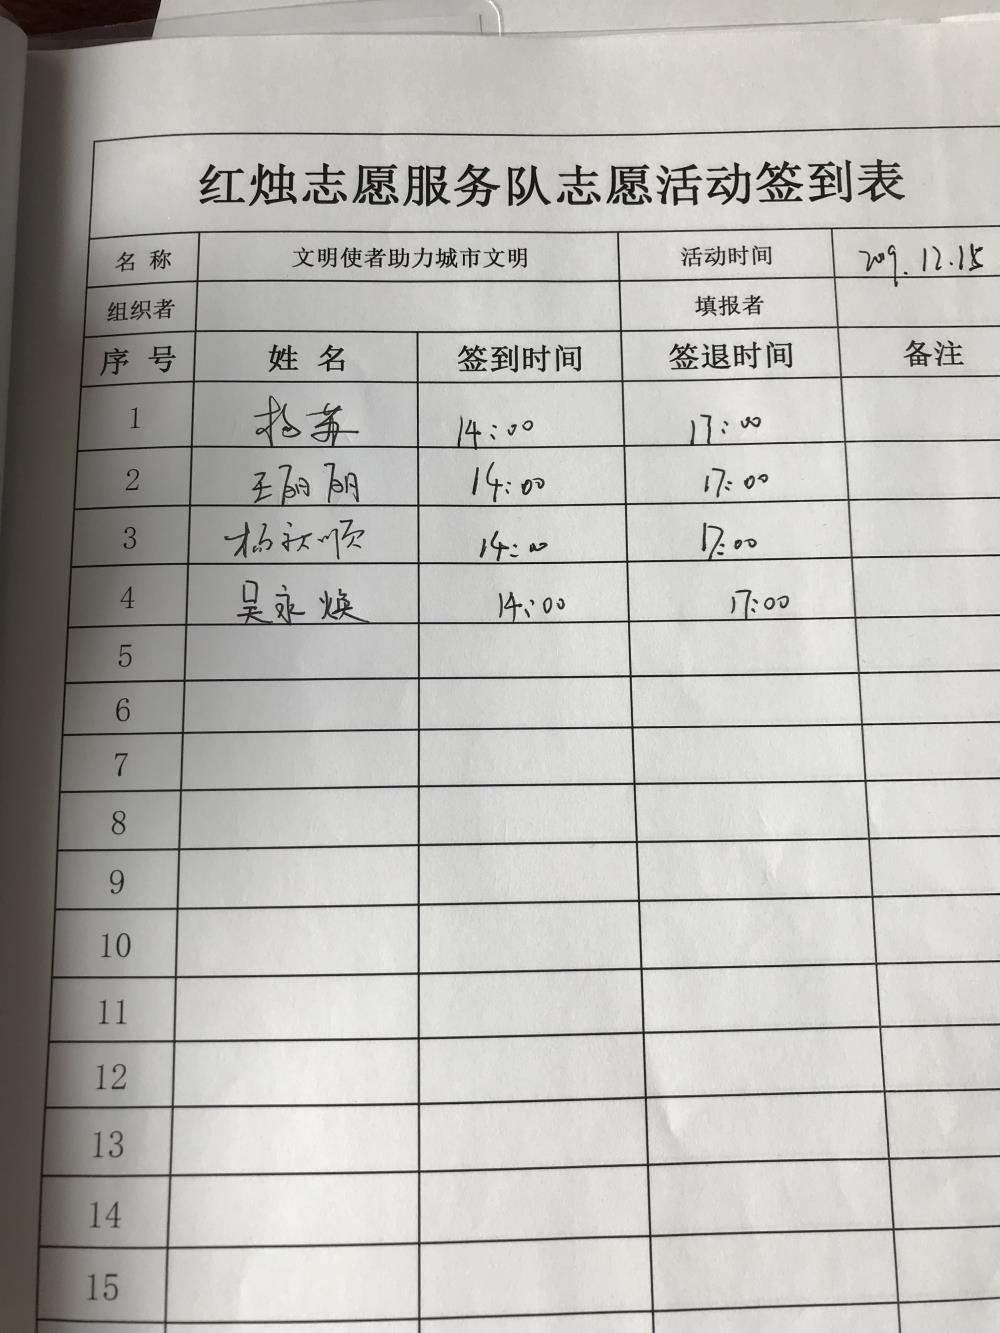 红烛志愿服务队志愿活动签到表
名 称 文明使者助力城市文明 活动时间 2019.12.15
组织者 填报者
序 号 姓 名 签到时间 签退时间 备注
1 杨苏 14:00 17:00
2 王丽丽 14:00 17:00
3 杨秋顺 14:00 17:00
4 吴永焕 14:00 17:00
5
6
7
8
9
10
11
12
13
14
15